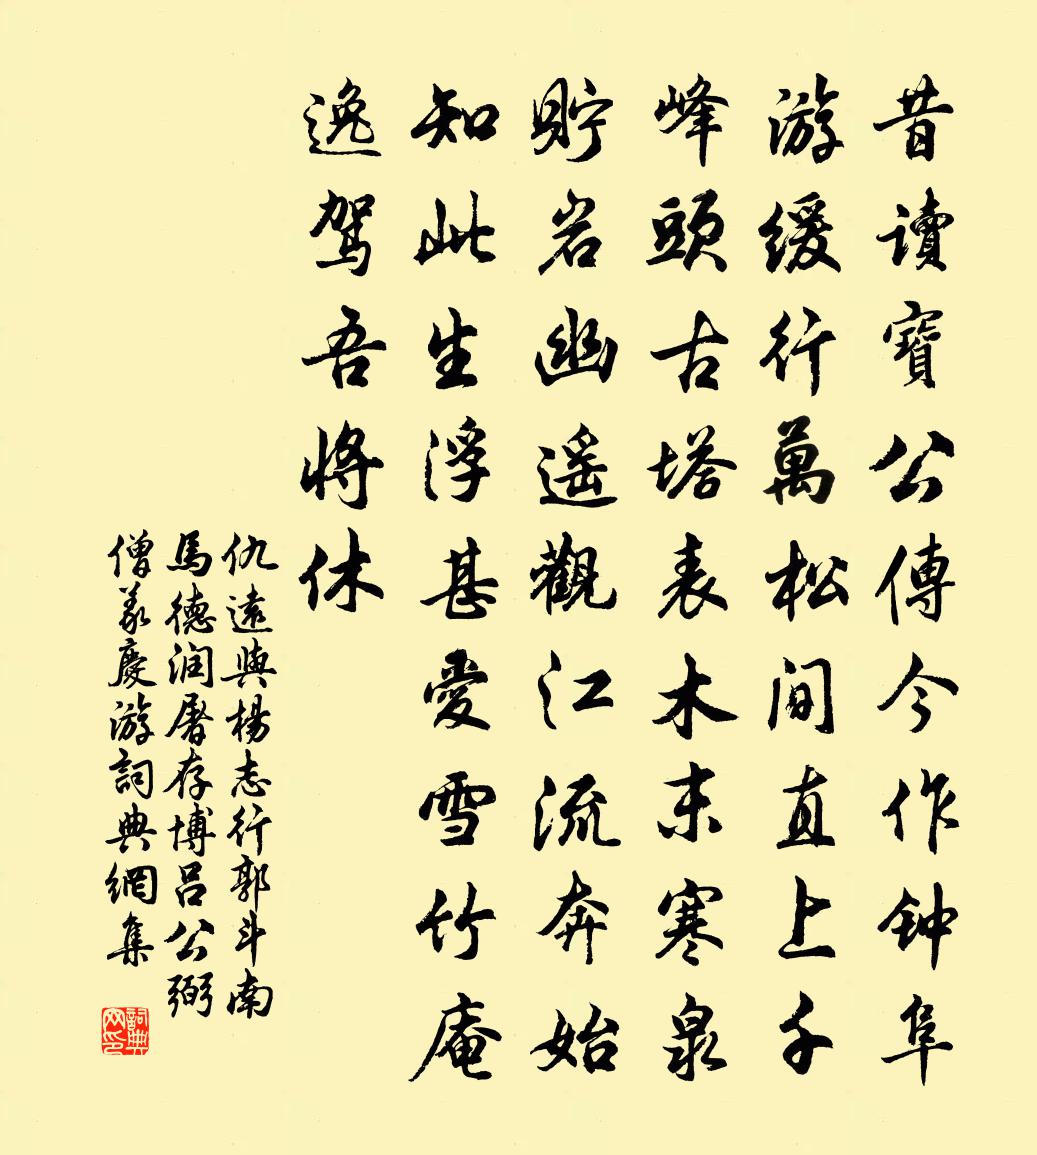 昔讀寶公傳今作钟阜
游缓行萬松间直上千
峰頭古塔表木末寒泉
貯岩幽遥觀江流奔始
知此生浮甚愛雪竹庵
逸駕吾將休
仇遠與楊志行郭斗南
馬德润屠存博吕公弼
僧羲慶游詞典網集
詞典网印